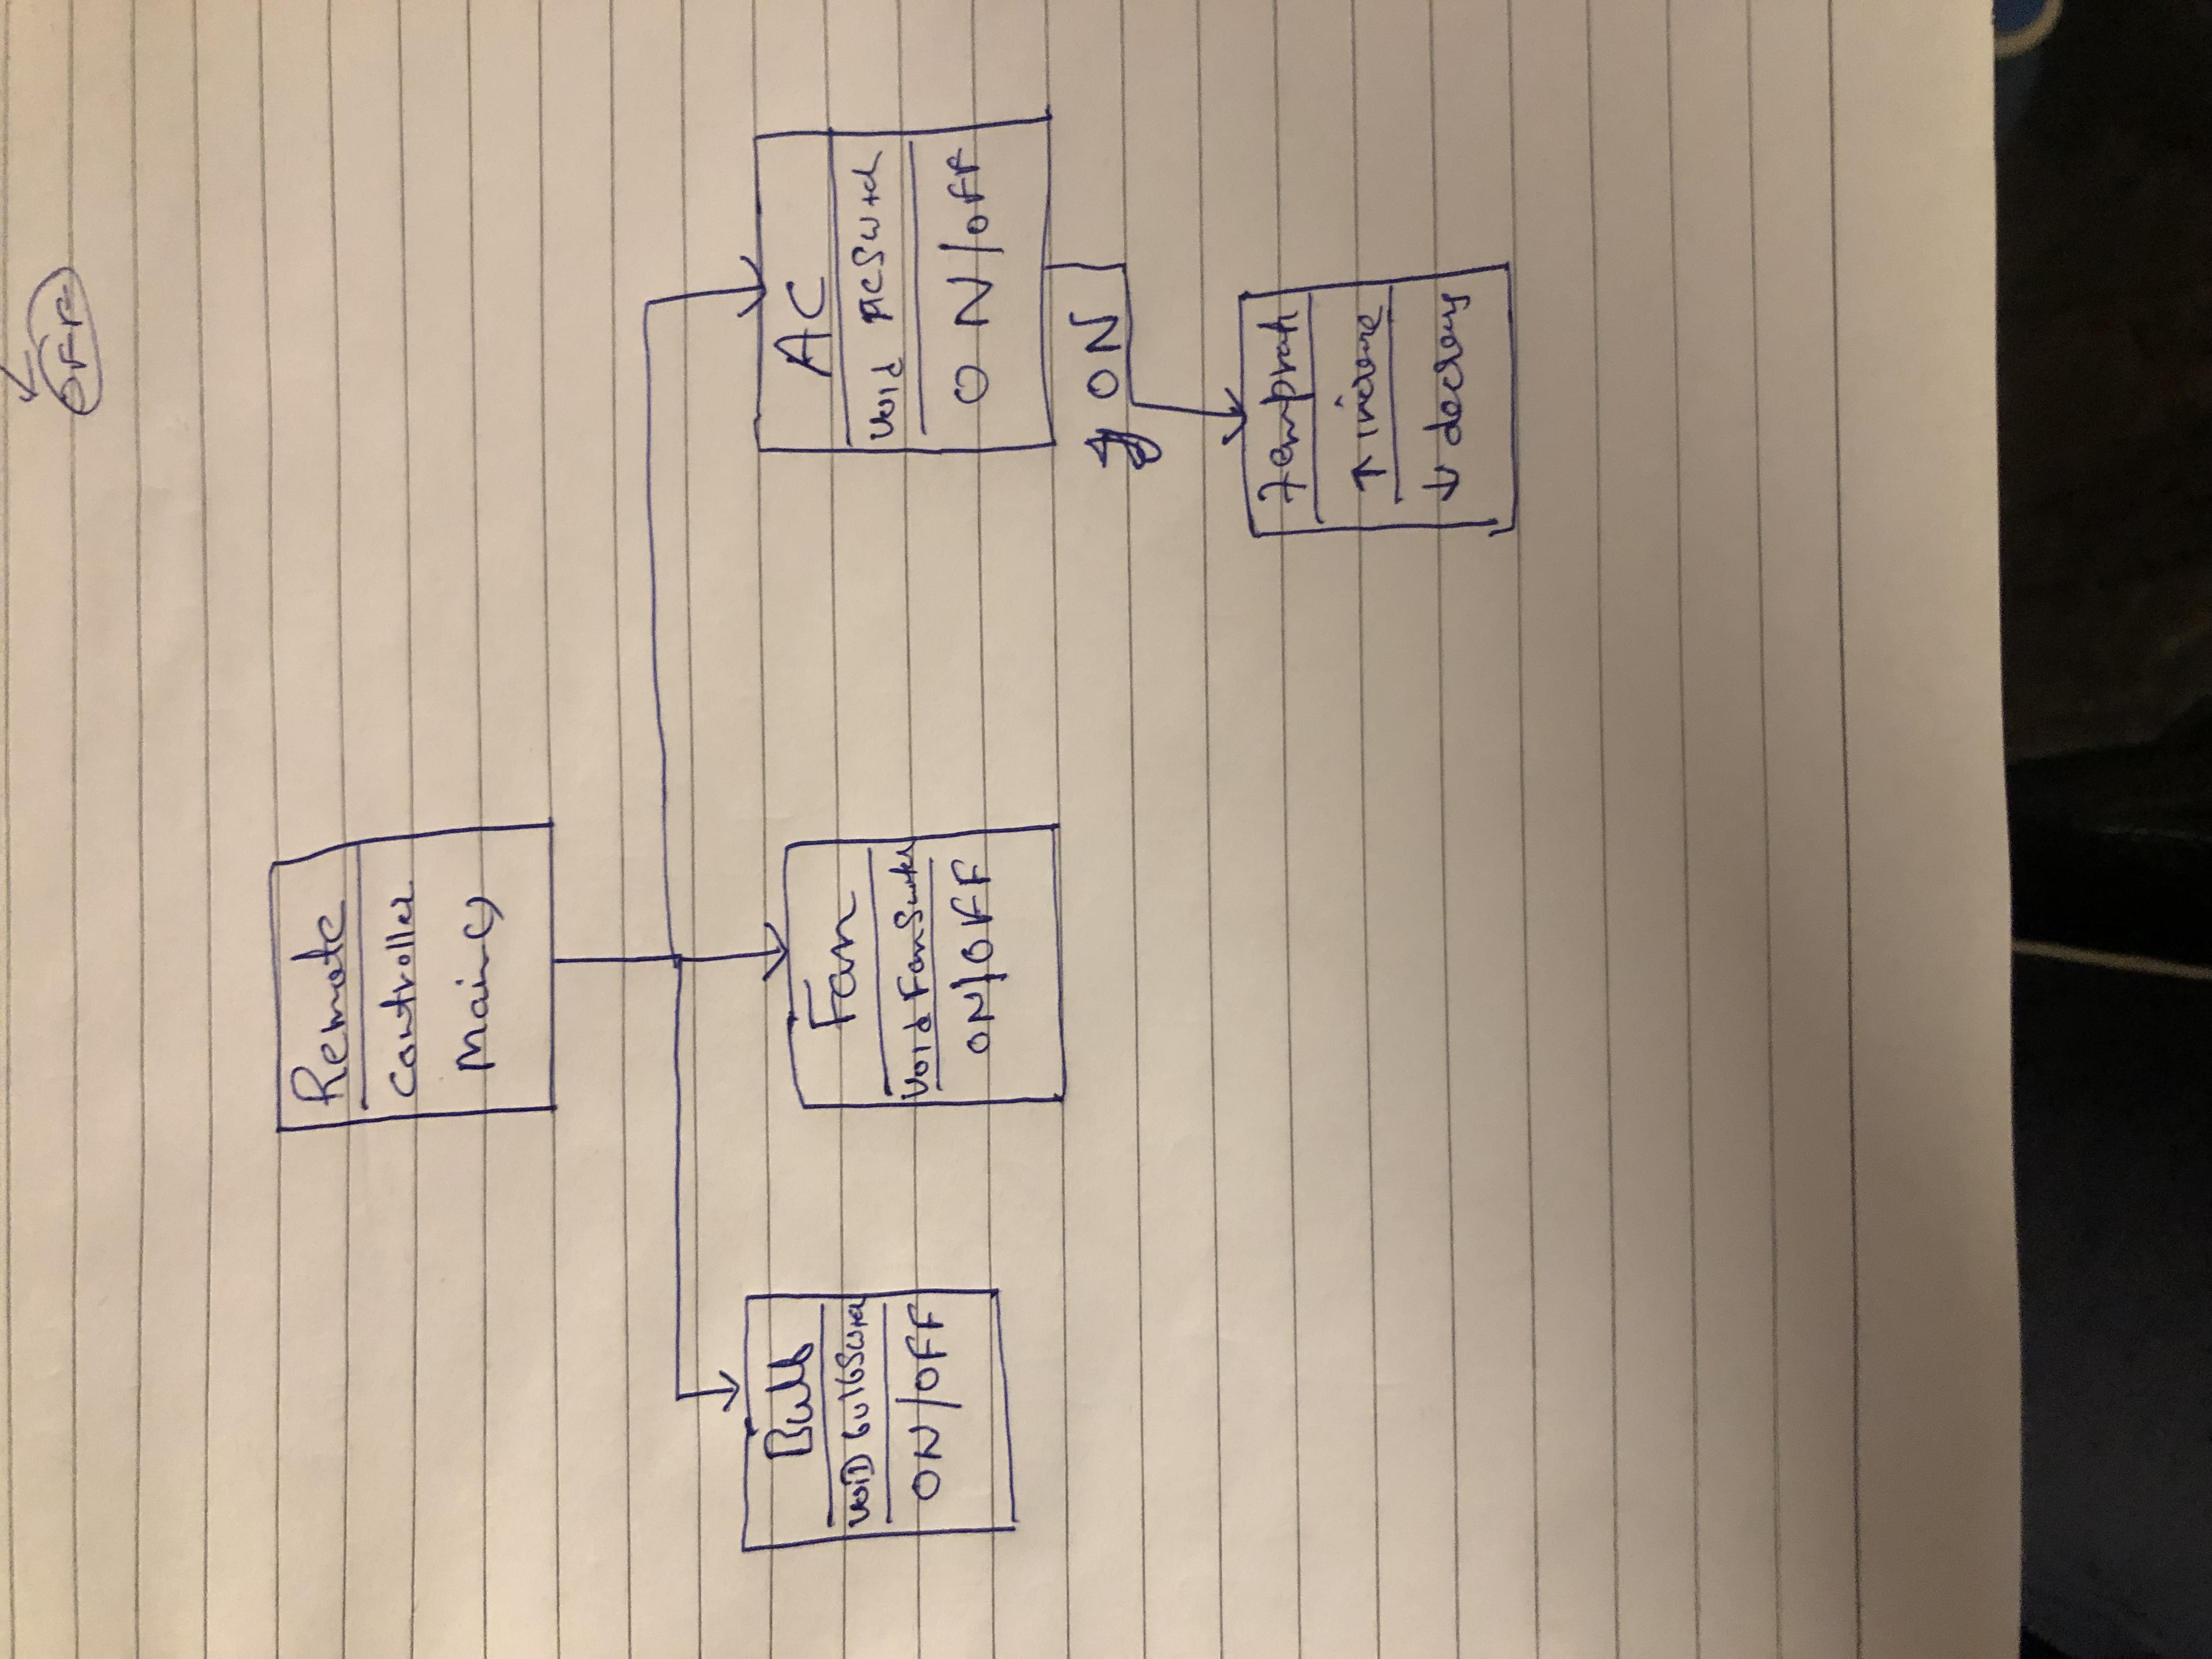 OFF
Remote
Controller
Main()
Bulb
VOID bulbSwitch
ON/OFF
Fan
Void FanSwitch
ON/OFF
AC
Void ACSwtch
ON/OFF
ON
↑ increase
↓ decreas